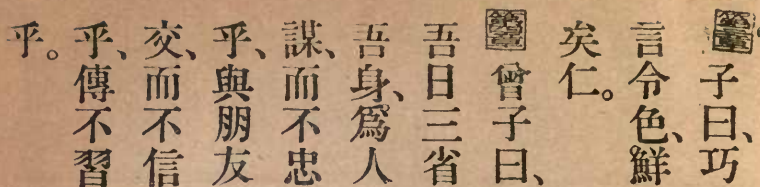 子曰、巧
言令色、鮮
矣仁。
曾子曰、
吾日三省
吾身、爲人
謀、而不忠
乎、與朋友
交、而不信
乎、傳不習
乎。